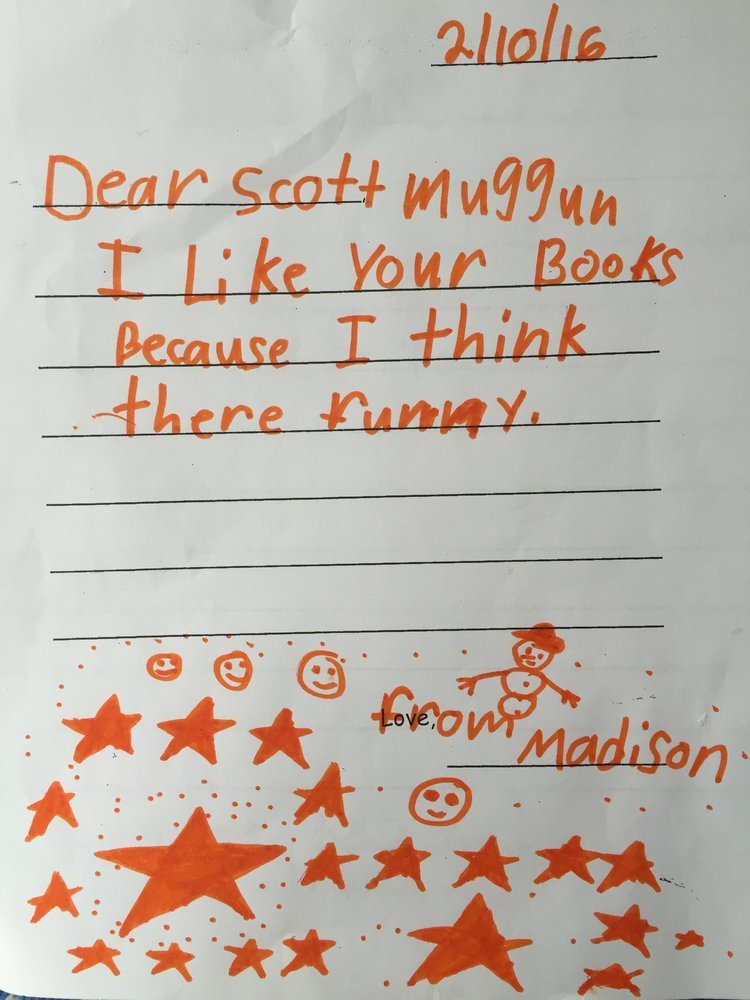 2/10/16
Dear Scott muggun
I Like Your Books
Because I think
there funny.
Love,
from
Madison